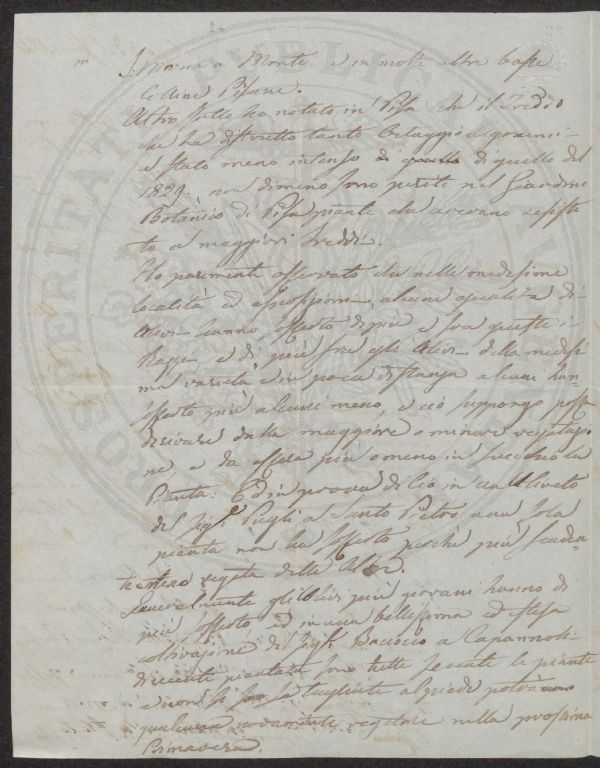 S. Miniato a Monte, e in molte altre basse
Colline Pisane.
Altro fatto ho notato in Pisa che il Freddo
che ha distrutto tante
è stato meno intenso di quello del
1829. non dimeno sono perite nel Giardino
Botànico di Pisa piante che avevano resisti
to a maggiori freddi.
Ho parimente osservato che nelle medesime
località ed esposizioni, alcune qualità di
Ulivi hanno sofferto di più e fra queste i
Razzi e di più fra gli Ulivi della medesi
ma varietà e in poca distanza alcuni han
sofferto più alcuni meno, e ciò suppongo possa
derivare dalla maggiore o minore vegetazio
ne e da essere più o meno in succhio la
Pianta. Ed in prova di ciò in un Uliveto
del Sigr. Pugli a Santo Pietro una sola
pianta non ha sofferto perchè più
vegeta delle Altre.
Generalmente gli Ulivi più giovani hanno di
più sofferto ed in una bellissima ed estesa
coltivazione del Sigr. a Capannoli
di recente piantata sono tutte seccate le piante
e non si fa tagliate al piede
novamente vegetare nella prossima
Primavera.